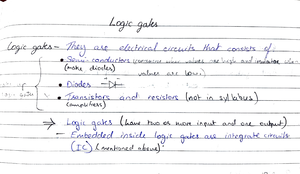 Logic gates
Logic gates - They are electrical circuits that consists of:
• Semi-conductors (conductor when values are high and insulator when
(make diodes) values are low)
• Diodes
• Transistors and resistors (not in syllabus)
(amplifiers)
→ Logic gates (have two or more input and one output)
- Embedded inside logic gates are integrate circuits
(IC) (mentioned above)